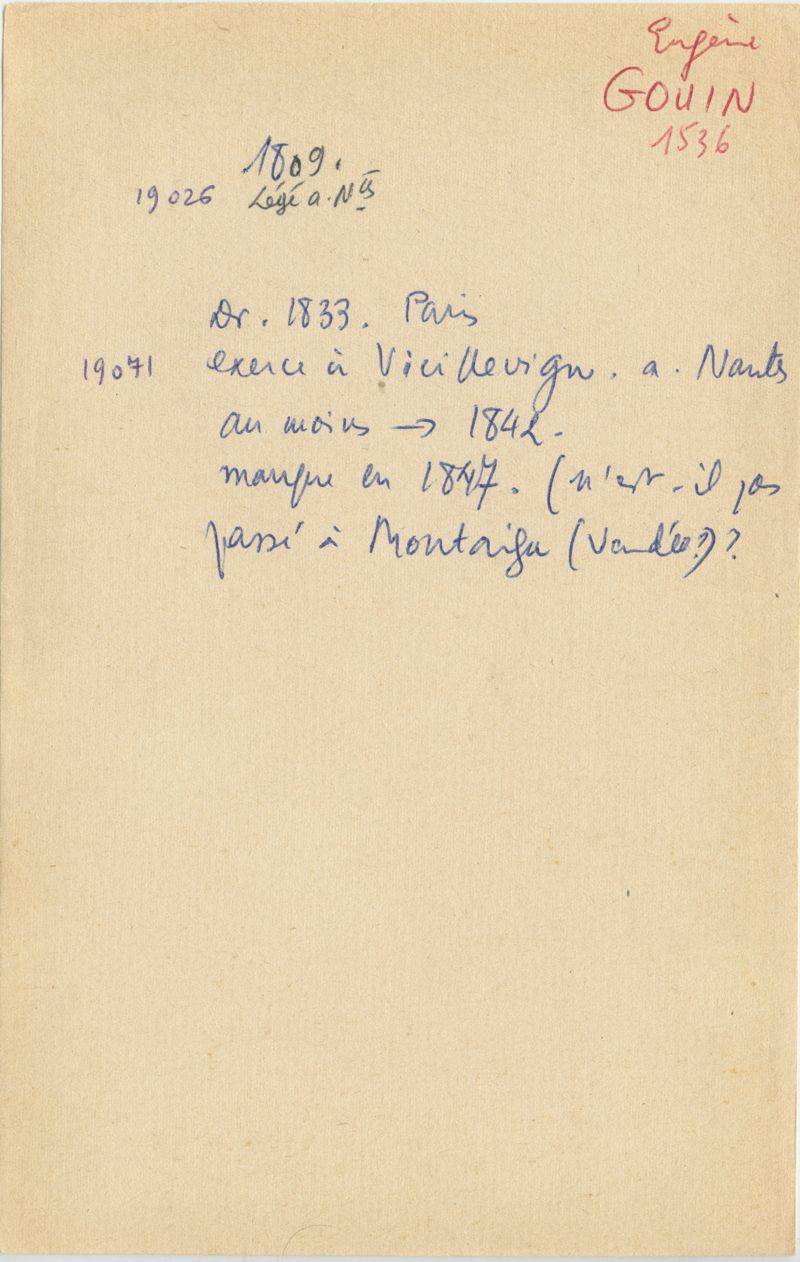 Eugène
GOUIN
1536
1809.
19026 Légé a. Ntes
Dr. 1833. Paris
19071 exerce à Vieillevigne. a. Nantes
au moins → 1842.
manque en 1847. (n'est-il pas
passé à Montaigu (Vendée?)?